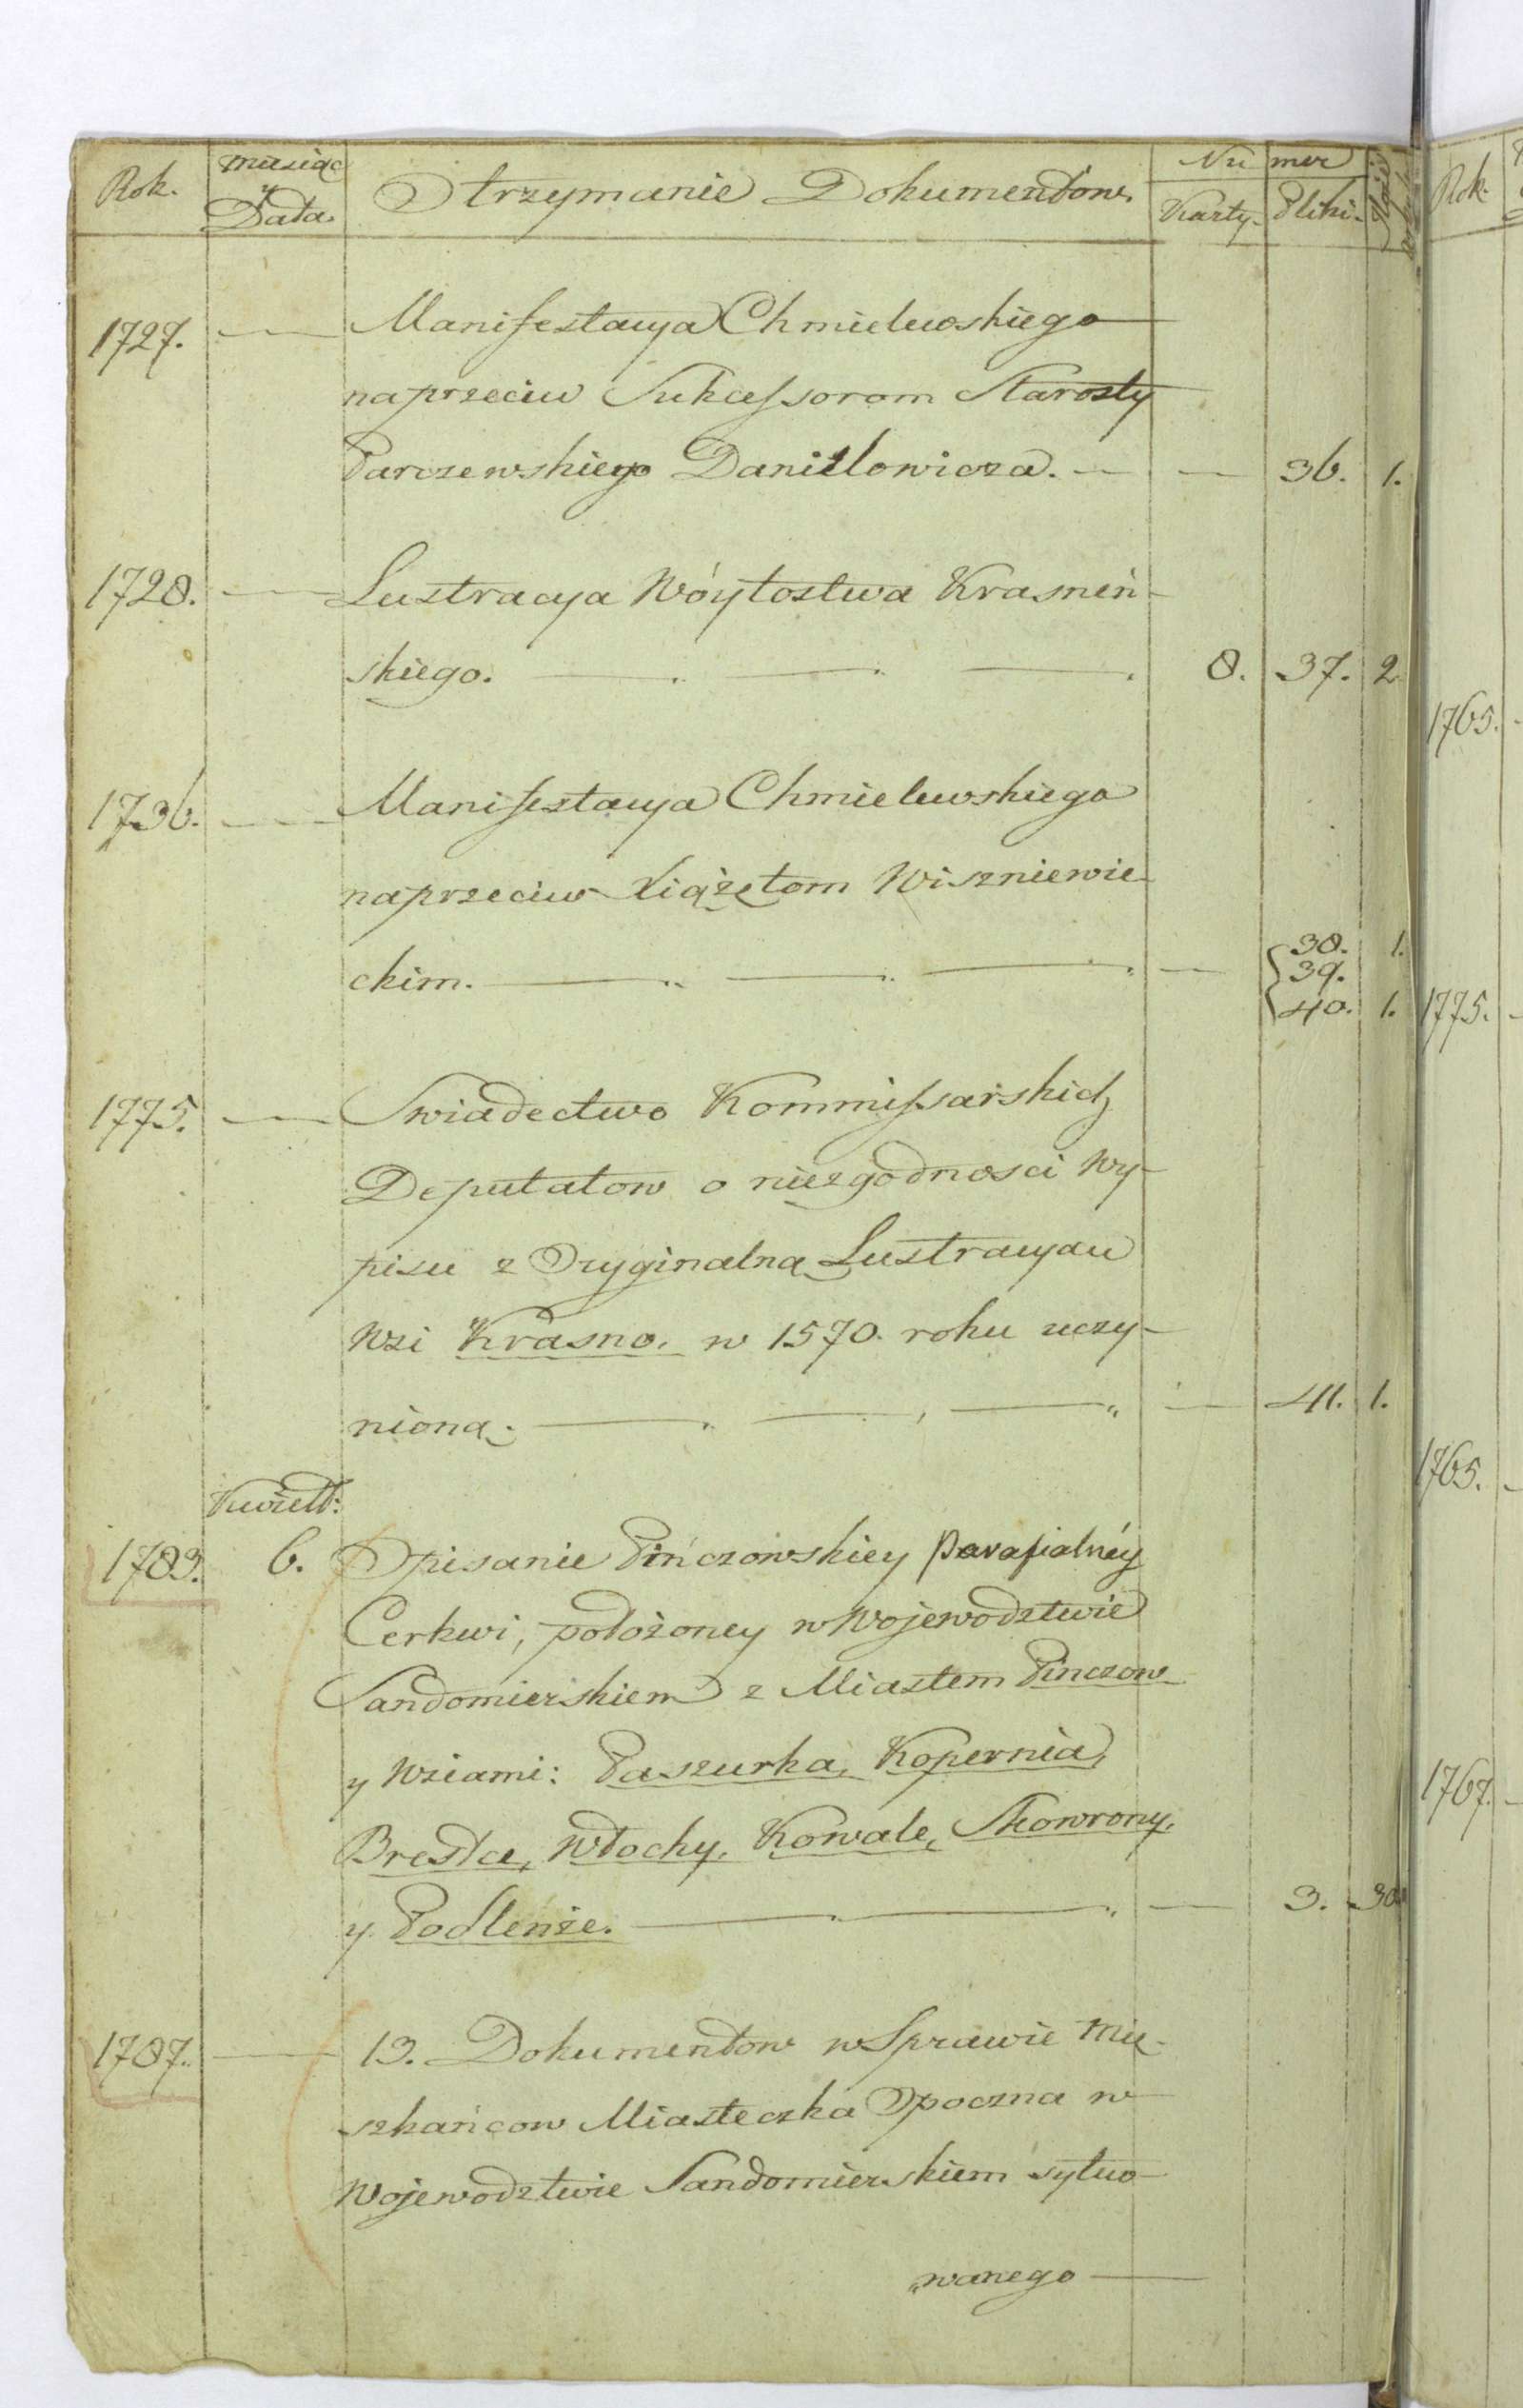 Rok. Miesiąc y Data. Otrzymanie Dokumentow. Numer
Karty. Pliki.
1727. — Manifestacya Chmielewskiego
naprzeciw Sukcessorom Starosty
Parczewskiego Daniłłowicza. — — 36. 1.
1728. — Lustracya Wóytostwa Krasnień-
skiego. — — — 8. 37. 2
1736. — Manifestacya Chmielewskiego
naprzeciw Xiążętom Wiszniewie-
ckim. — — — — 38. 1.
39.
40. 1.
1775. — Swiadectwo Kommissarskich
Deputatow o niezgodnosci Wy-
pisu z Oryginalną Lustracyau
Wsi Krasno, w 1570. roku uczy-
nioną. — — — — 41. 1.
Kwiet:
1783. 6. Opisanie Pińczowskiey Parafialnéy
Cerkwi, położoney w Wojewodztwie
Sandomierskiem z Miastem Pinczow
y Wsiami: Paszurka, Kopernia,
Brestce, Włochy, Kowale, Skowrony,
y Podlenże. — — — 3. 30
1787. — 13. Dokumentow w Sprawie Mie-
szkańcow Miasteczka Opoczna w
Wojewodztwie Sandomierskiem sytuo-
„wanego —
Rok.
1765.
1775.
1765.
1767.